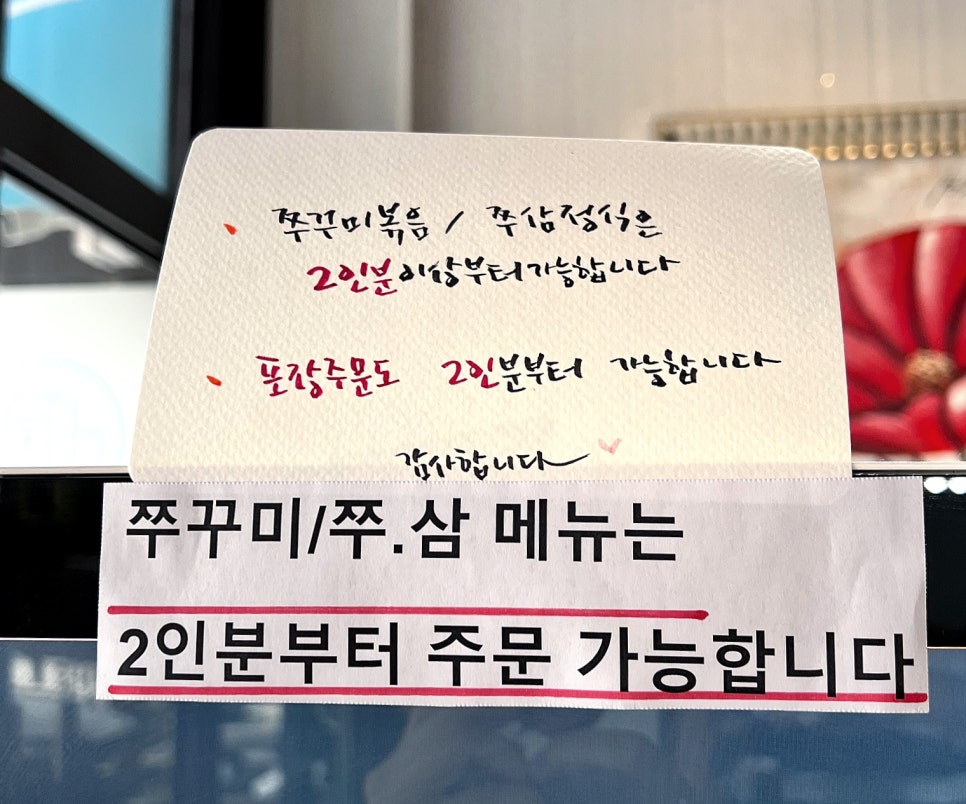 쭈꾸미볶음 / 쭈삼정식은
2인분이상부터가능합니다
포장주문도 2인분부터 가능합니다
감사합니다
쭈꾸미/쭈.삼 메뉴는
2인분부터 주문 가능합니다